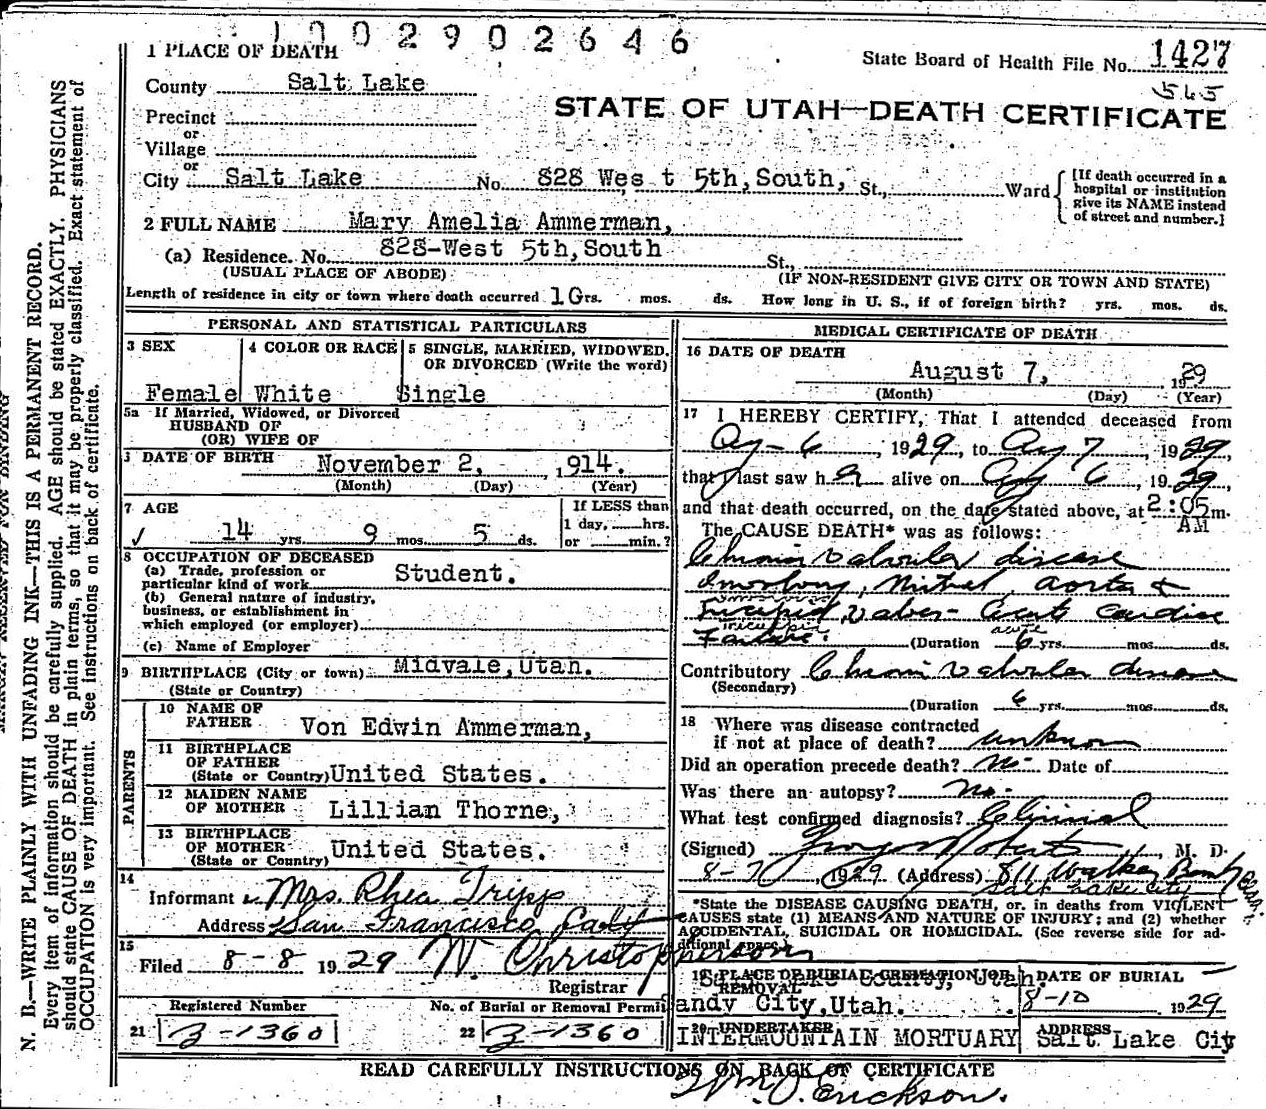 1 0 0 2 9 0 2 6 4 6
1 PLACE OF DEATH
State Board of Health File No. 1427
County Salt Lake
545
STATE OF UTAH—DEATH CERTIFICATE
Precinct
or
Village
or
City Salt Lake No. 828 Wes t 5th, South, St., Ward
[If death occurred in a
hospital or institution
give its NAME instead
of street and number.]
2 FULL NAME Mary Amelia Ammerman,
(a) Residence. No. 828-West 5th, South St.,
(USUAL PLACE OF ABODE) (IF NON-RESIDENT GIVE CITY OR TOWN AND STATE)
Length of residence in city or town where death occurred rs. mos. ds. How long in U. S., if of foreign birth? yrs. mos. ds.
PERSONAL AND STATISTICAL PARTICULARS
3 SEX 4 COLOR OR RACE 5 SINGLE, MARRIED, WIDOWED,
OR DIVORCED (Write the word)
Female White Single
5a If Married, Widowed, or Divorced
HUSBAND OF
(OR) WIFE OF
DATE OF BIRTH November 2, 1914.
(Month) (Day) (Year)
7 AGE If LESS than
1 day, hrs.
14 yrs. 9 mos. 5 ds. or min.?
8 OCCUPATION OF DECEASED
(a) Trade, profession or
particular kind of work Student.
(b) General nature of industry,
business, or establishment in
which employed (or employer)
(c) Name of Employer
9 BIRTHPLACE (City or town) Midvale, Utah.
(State or Country)
PARENTS
10 NAME OF
FATHER Von Edwin Ammerman,
11 BIRTHPLACE
OF FATHER
(State or Country) United States.
12 MAIDEN NAME
OF MOTHER Lillian Thorne,
13 BIRTHPLACE
OF MOTHER
(State or Country) United States.
14
Informant Mrs. Rhea Tripp
Address San Francisco
15
Filed 8-8 1929 N. Christopherson
Registrar
Registered Number No. of Burial or Removal Permit
21 3-1360 22 3-1360
MEDICAL CERTIFICATE OF DEATH
16 DATE OF DEATH
August 7, 1929
(Month) (Day) (Year)
17 I HEREBY CERTIFY, That I attended deceased from
Ag-6, 1929, to Aug 7 1929,
that I last saw her alive on Aug 6, 1929,
and that death occurred, on the date stated above, at 2:05 m.
AM
The CAUSE DEATH* was as follows:
Chronic valvular disease
involving, Mitral, aorta &
Tricuspid valves - Acute Cardiac
tricuspid acute
Failure. (Duration 6 yrs. mos. ds.
Contributory Chronic valvular disease
(Secondary)
(Duration 6 yrs. mos. ds.
18 Where was disease contracted
if not at place of death? unknown
Did an operation precede death? No- Date of
Was there an autopsy? No-
What test confirmed diagnosis? Clinical
(Signed) George Roberts, M. D.
8-7 1929 (Address) 811 Walker Bank Bldg.
Salt Lake City
*State the DISEASE CAUSING DEATH, or, in deaths from VIOLENT
CAUSES state (1) MEANS AND NATURE OF INJURY; and (2) whether
ACCIDENTAL, SUICIDAL OR HOMICIDAL. (See reverse side for ad-
ditional space.)
19 PLACE OF BURIAL, CREMATION, OR
REMOVAL
Salt Lake County, Utah.
andy City, Utah.
DATE OF BURIAL
8-10 1929
20 UNDERTAKER
INTERMOUNTAIN MORTUARY
ADDRESS
Salt Lake City
READ CAREFULLY INSTRUCTIONS ON BACK OF CERTIFICATE
Wm. O. Erickson.
MARGIN RESERVED FOR BINDING
N. B.—WRITE PLAINLY WITH UNFADING INK—THIS IS A PERMANENT RECORD.
Every item of information should be carefully supplied. AGE should be stated EXACTLY. PHYSICIANS
should state CAUSE OF DEATH in plain terms, so that it may be properly classified. Exact statement of
OCCUPATION is very important. See instructions on back of certificate.